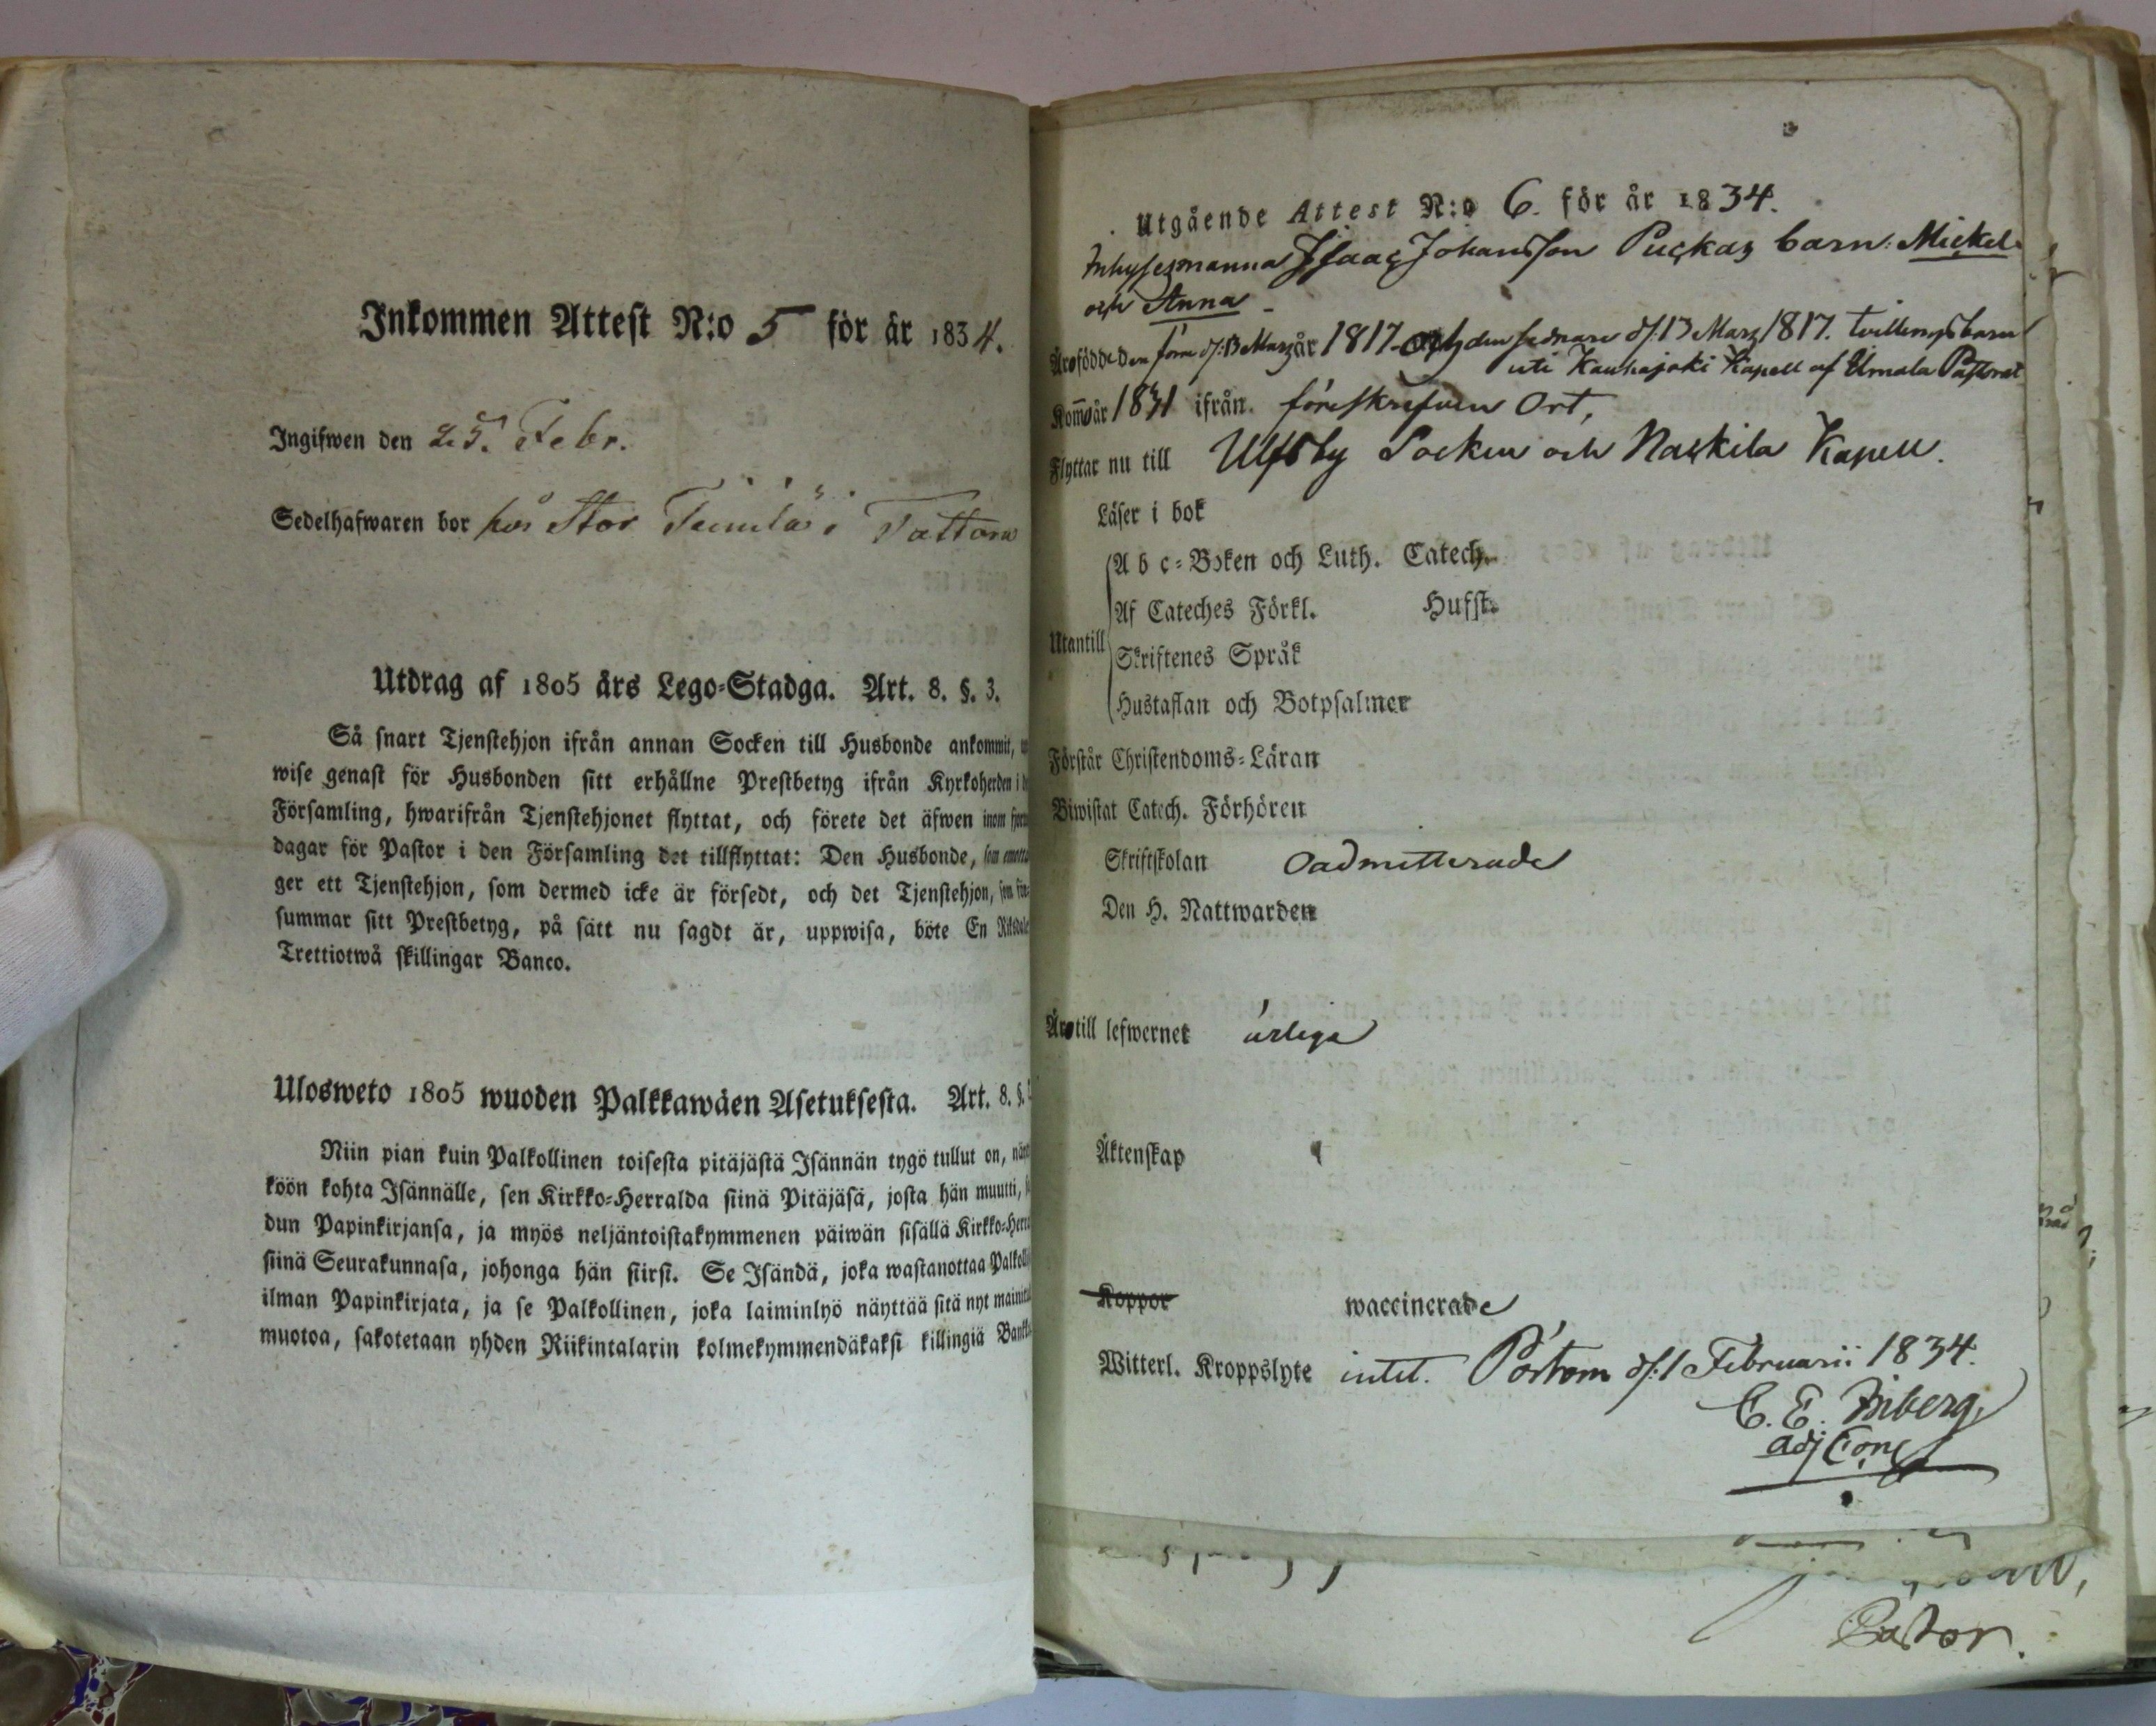 Inkommen Attest N:o 5 för år 1834.
Ingifwen den 25. Febr.
Sedelhafwaren bor hos Stor i Tattara
Utdrag af 1805 års Lego-Stadga. Art. 8. §. 3.
Så snart Tjenstehjon ifrån annan Socken till Husbonde ankommit,
wise genast för Husbonden sitt erhållne Prestbetyg ifrån Kyrkoherden i
Församling, hwarifrån Tjenstehjonet flyttat, och förete det äfwen inom
dagar för Pastor i den Församling det tillflyttat: Den Husbonde, som
ger ett Tjenstehjon, som dermed icke är försedt, och det Tjenstehjon, som för-
summar sitt Prestbetyg, på sätt nu sagdt är, uppwisa, böte En Riksdaler
Trettiotwå skillingar Banco.
Ulosweto 1805 wuoden Palkkawäen Asetuksesta. Art. 8. §.
Niin pian kuin Palkollinen toisesta pitäjästä Isännän tygö tullut on,
köön kohta Isännälle, sen Kirkko-Herralda siinä Pitäjäsä, josta hän muutti,
dun Papinkirjansa, ja myös neljäntoistakymmenen päiwän sisällä Kirkko-
siinä Seurakunnasa, johonga hän siirsi. Se Isändä, joka wastanottaa
ilman Papinkirjata, ja se Palkollinen, joka laiminlyö näyttää sitä nyt
muotoa, sakotetaan yhden Riikintalarin kolmekymmendäkaksi killingiä
Utgående Attest N:o 6. för år 1834.
Inhysesmanna Isaac Johansson Puckas barn: Mickel
och Anna
Äro födde den förra d: 13 Mars år 1817. och den sednare d: 13 Mars 1817. tvillingsbarn
uti Kauhajoki Kapell af Ilmola Pastorat
Kommo år 1831 ifrån föreskrefven Ort,
Flyttar nu till Ulfsby Socken och Nackila Kapell.
Läser i bok
A b c-Boken och Luth. Catech.
Af Cateches Förkl. Hufst.
Utantill
Skriftenes Språk
Hustaflan och Botpsalmer
Förstår Christendoms-Läran
Biwistat Catech. Förhören
Skriftskolan Oadmitterade
Den H. Nattwarden
Äro till lefwernet ärliga
Äktenskap
Koppor waccinerade
Witterl. Kroppslyte intet. Pörtom d: 1 Februarii 1834.
C. E.
adj
Pastor.